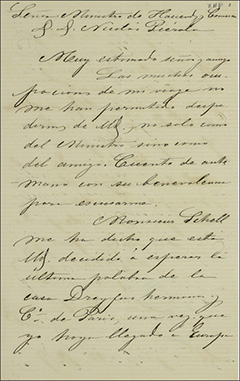 Señor Ministro de Hacienda y Comercio
D. D. Nicolás Piérola
Muy estimado señor y amigo
Las muchas ocu-
paciones de mi viage no
me han permitido despe-
dirme de U. no solo como
del Ministro sino como
del amigo. Cuento de ante
mano con su benevolencia
para escusarme.
Monsieur Schell
me ha dicho que está
U. decidido á esperar la
última palabra de la
casa Dreyfus hermanos y
Ca. de Paris, una vez que
yo haya llegado á Europa